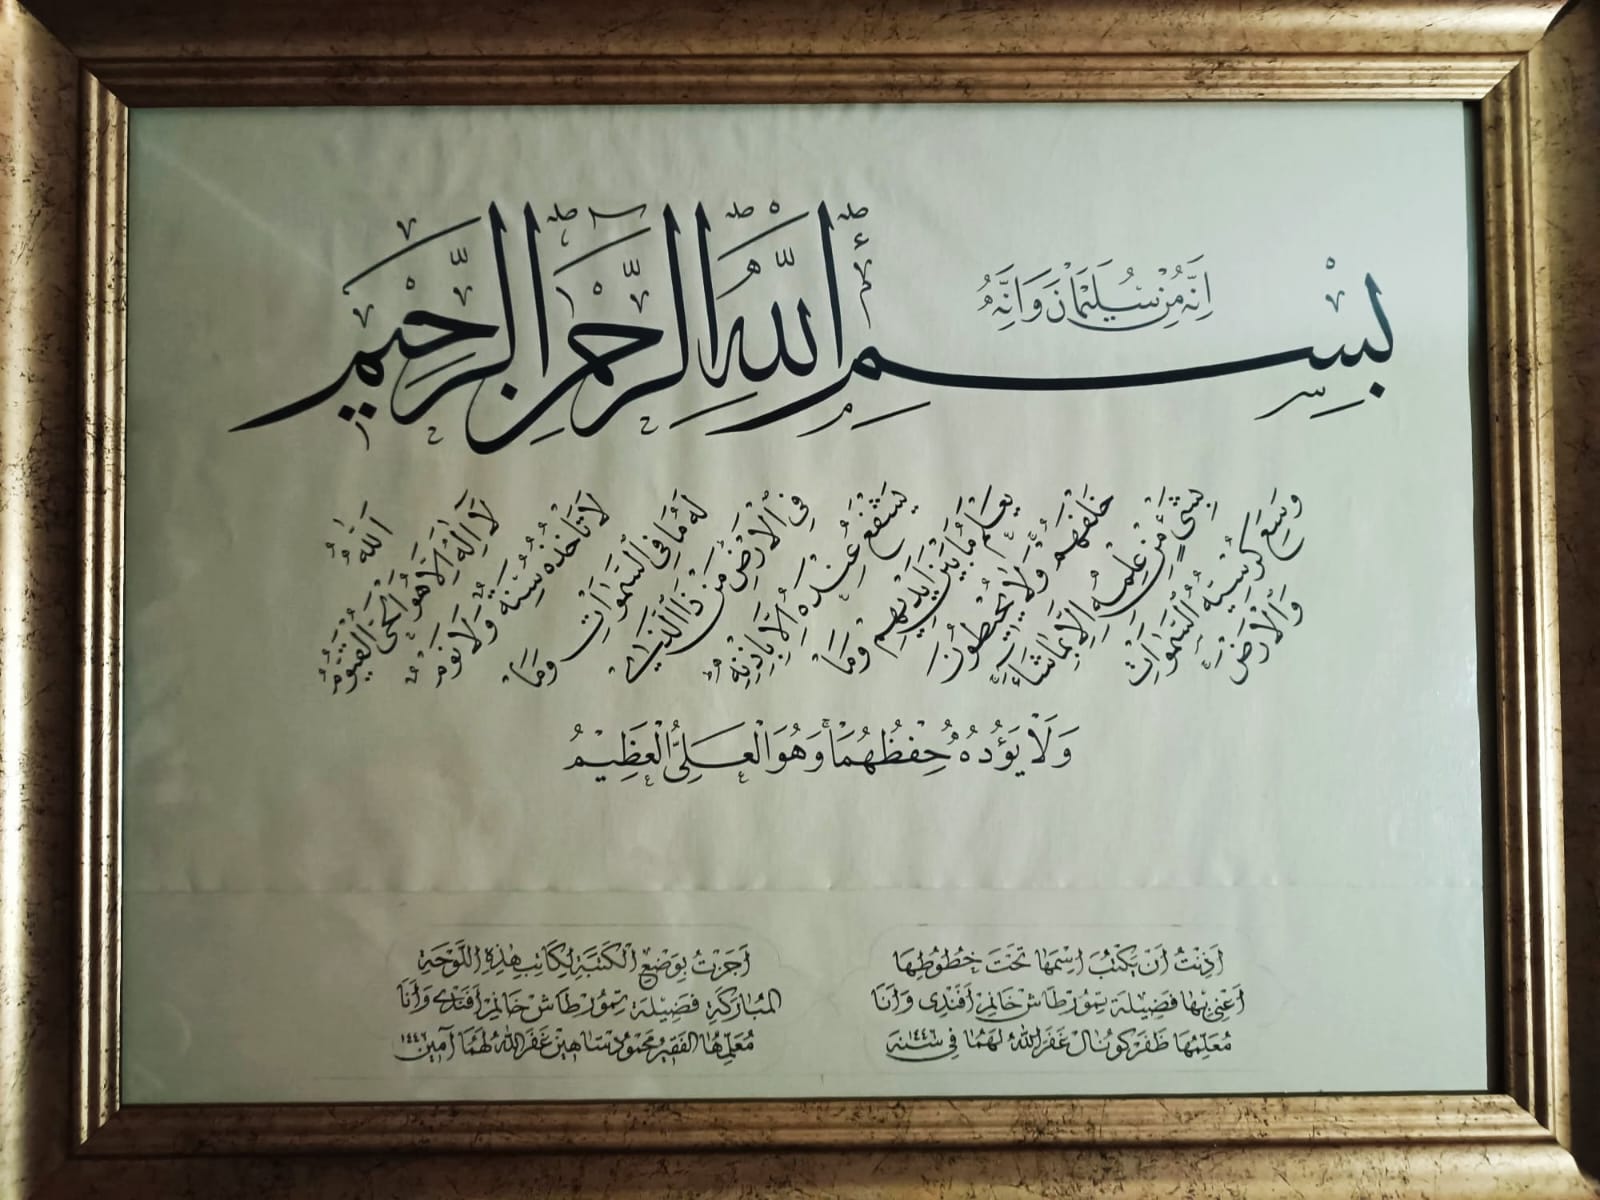 اِنَّهُ مِنْ سُلَيْمَانَ وَاِنَّهُ
بِسْمِ اللّٰهِ الرَّحْمٰنِ الرَّحِيْمِ
اَللّٰهُ
لَآ اِلٰهَ اِلَّا هُوَ اَلْحَىُّ الْقَيُّوْمُ
لَا تَاْخُذُهُ سِنَةٌ وَلَا نَوْمٌ
لَهُ مَا فِى السَّمٰوَاتِ وَمَا
فِى الْاَرْضِ مَنْ ذَا الَّذِىْ
يَشْفَعُ عِنْدَهُ اِلَّا بِاِذْنِهِ
يَعْلَمُ مَا بَيْنَ اَيْدِيْهِمْ وَمَا
خَلْفَهُمْ وَلَا يُحِيْطُوْنَ
بِشَىْءٍ مِنْ عِلْمِهِ اِلَّا بِمَا شَآءَ
وَسِعَ كُرْسِيُّهُ السَّمٰوَاتِ
وَالْاَرْضَ
وَلَا يَؤُدُهُ حِفْظُهُمَا وَهُوَ الْعَلِىُّ الْعَظِيْمُ
اَذِنْتُ اَنْ تَكْتُبَ اِسْمَهَا تَحْتَ خُطُوْطِهَا
اَعْنِى بِهَا فَضِيْلَة تِيمُوْرْطَاشْ خَانِمْ اَفَنْدِى وَاَنَا
مُعَلِّمُهَا ظَفَرْ كُونَالْ غَفَرَ اللّٰهُ لَهُمَا فِى سَنَة ١٤٤٦
اَجَزْتُ بِوَضْعِ الْكَتَبَةِ لِكَاتِبِ هٰذِهِ اللَّوْحَةِ
الْمُبَارَكَةِ فَضِيْلَة تِيمُوْرْطَاشْ خَانِمْ اَفَنْدِى وَاَنَا
مُعَلِّمُهَا الْفَقِيْرُ مَحْمُود شَاهِيْنْ غَفَرَ اللّٰهُ لَهُمَا آمِيْن ١٤٤٦